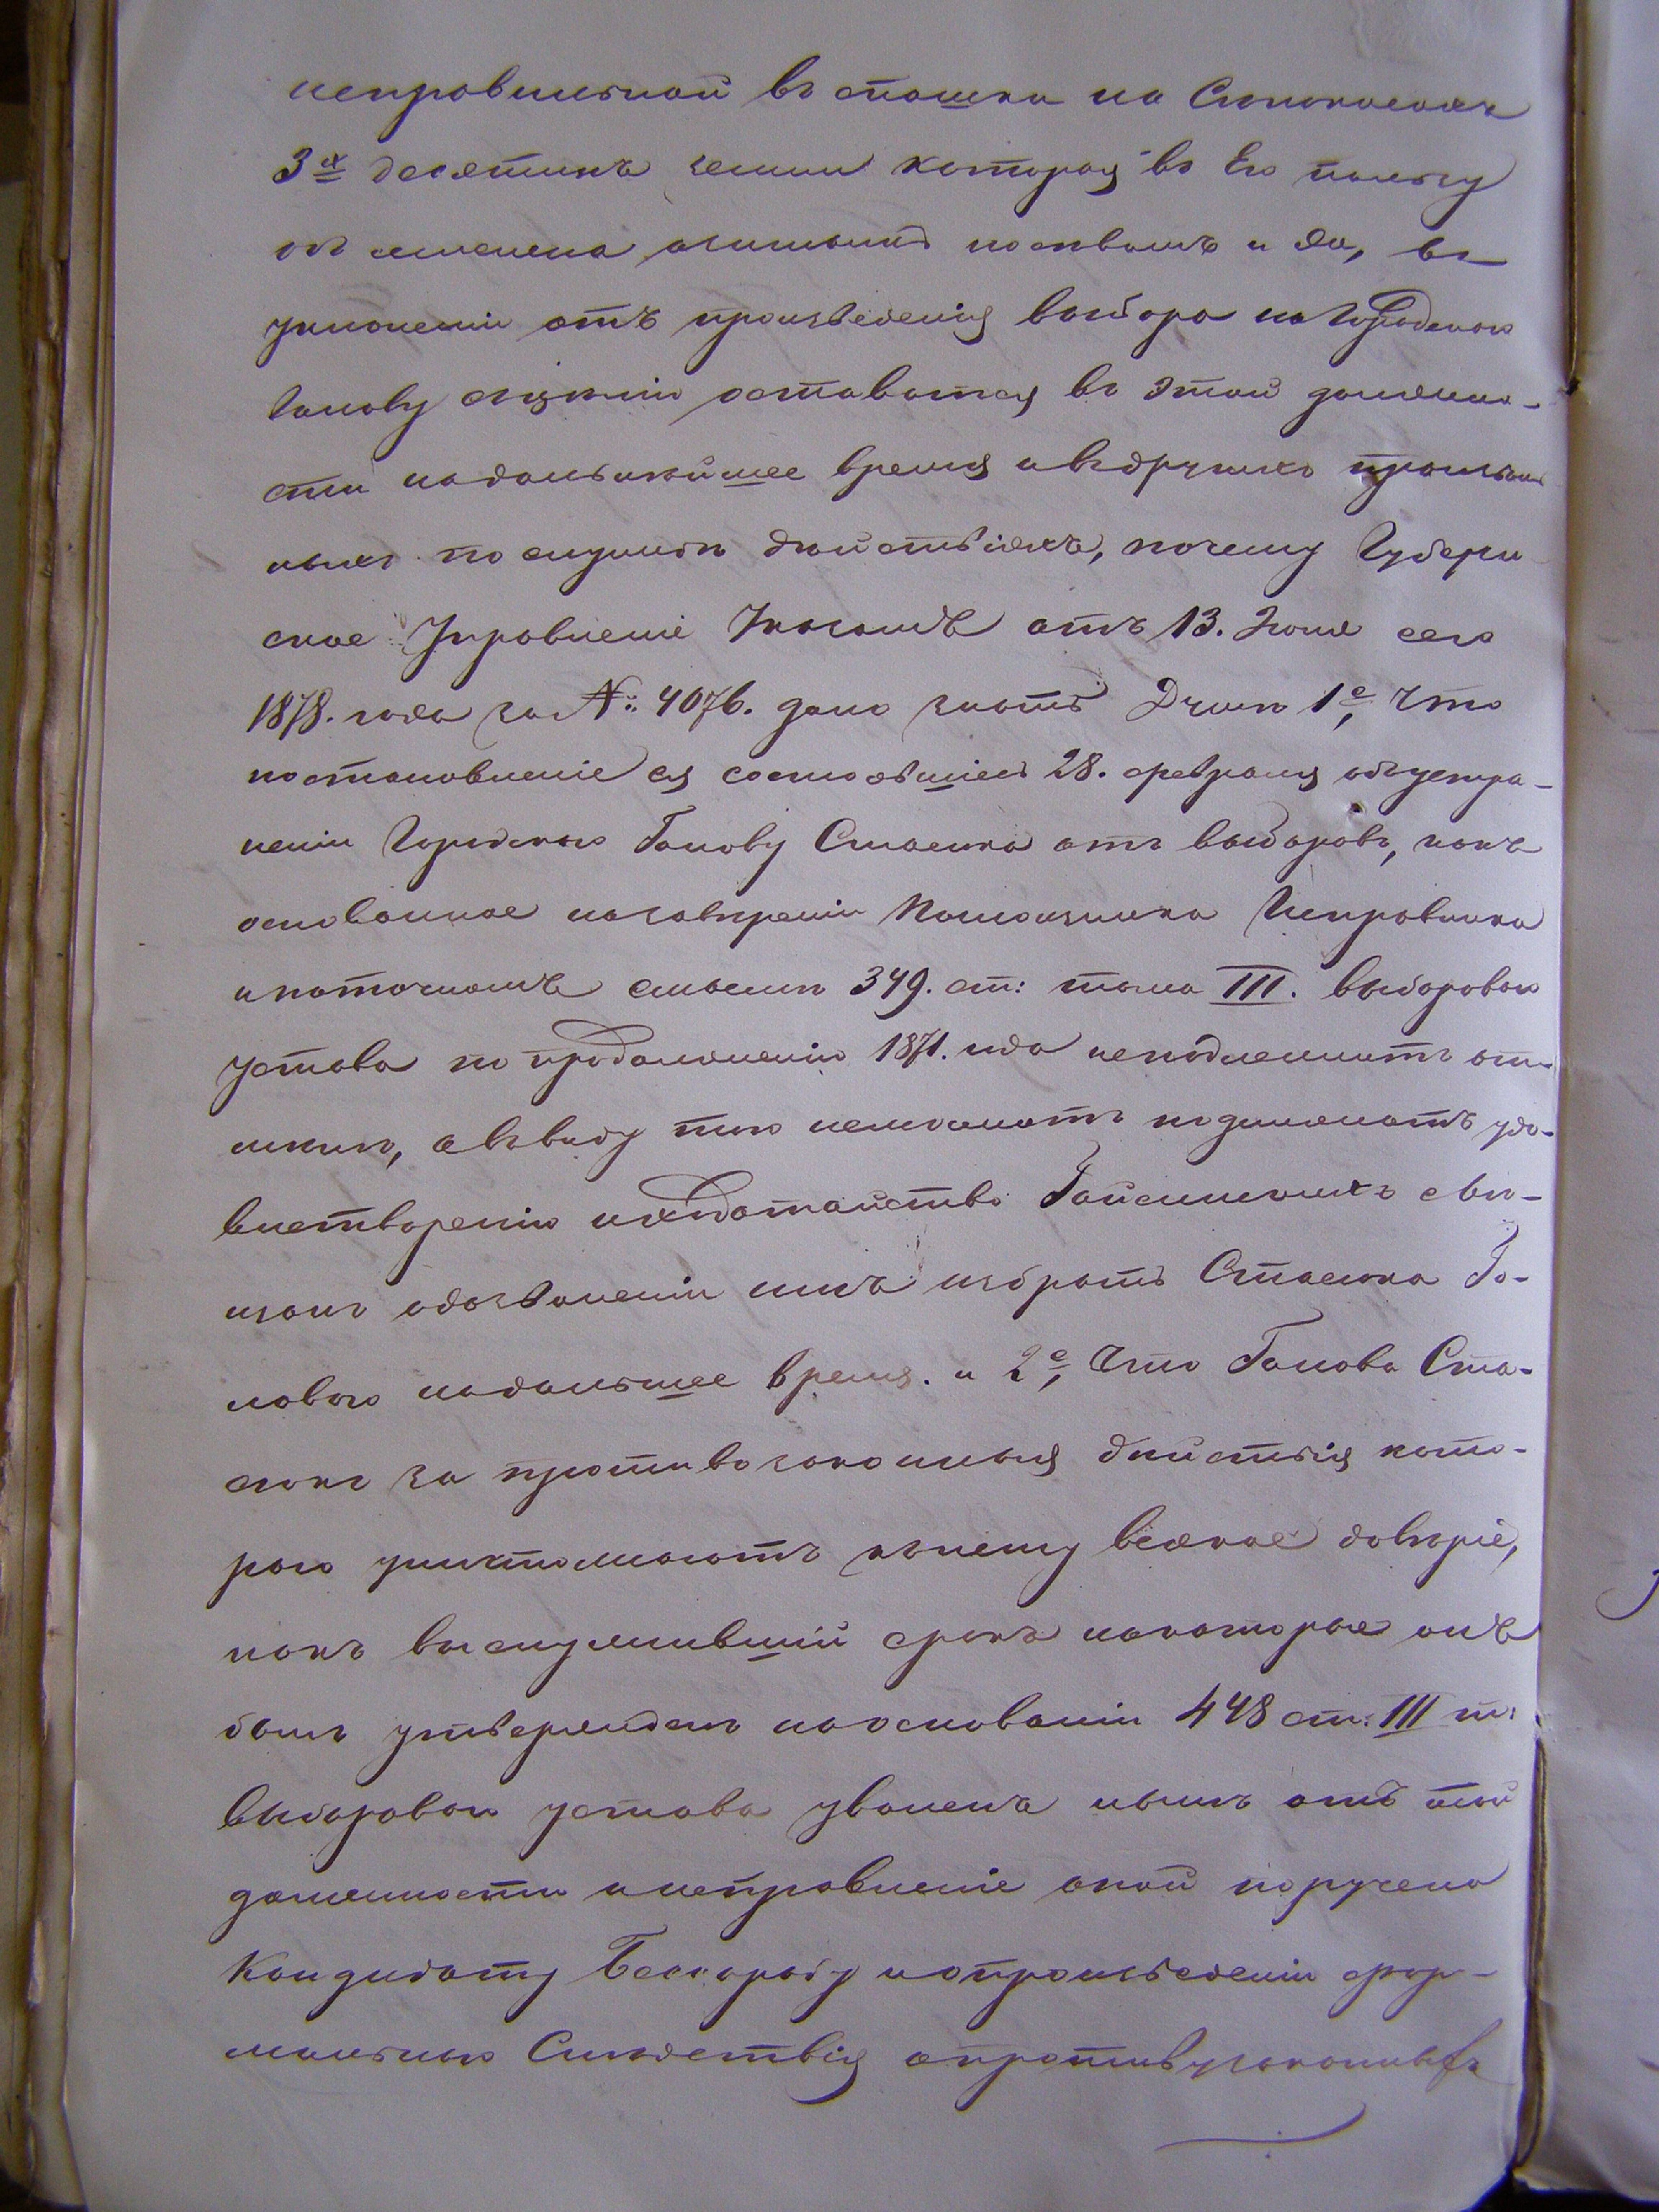 неправильной въ отошки на Стокаленъ
3х десятинъ земли которая въ Его пользу
и да, въ
уклоненіи отъ произведенія выбора на Городскаго
Голову съ цѣлію оставатся въ этой должно-
сти надольнѣйшее время и въ другихъ
ныхъ по службѣ дѣйствіяхъ, почему Губерн
ское Управленіе Указомъ отъ 13. Іюня сего
1878. года за №: 4076. дало знать Думѣ 1е, Что
постановленіе ея состоявшіесь 28. февраля объ устра-
неніи Городскаго Голову Стасюка отъ выборовъ, какъ
основанное на завѣреніи Помощника Исправника
и на точномъ смыслѣ 349. ст: тома III. выборовъ
устава по продолженію 1871. года неподлежитъ от-
мѣнѣ, а въ виду того неможетъ подлежать удо-
влетворенію и ходатайство Гайсинскихъ
о дозволеніи имъ избрать Стасюка Го-
ловою надольшее время. и 2е, Что Голова Ста-
сюкъ за противозаконныя дѣйствія кото-
раго уничтожаютъ къ нему всякое довѣріе,
какъ выслужившій срокъ на которые онъ
былъ утвержденъ на основаніи 448 ст: III т:
выборовъ устава уволенъ нынѣ отъ той
должности и исправленіе оной поручено
Кандидату и о произведеніи фор-
мальнаго Слѣдствія о противузаконныхъ